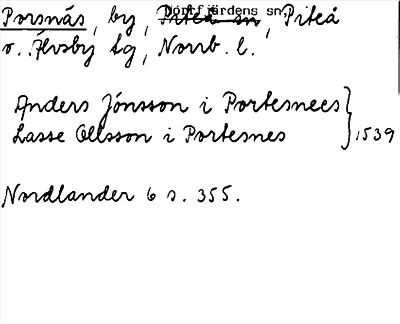 Porsnäs, by, Norrfjärdens sn, Piteå
o. Älvsby tg, Norrb. l.
Anders Jónsson i Portesnees
Lasse Ollsson i Portesnes } 1539
Nordlander 6 s. 355.